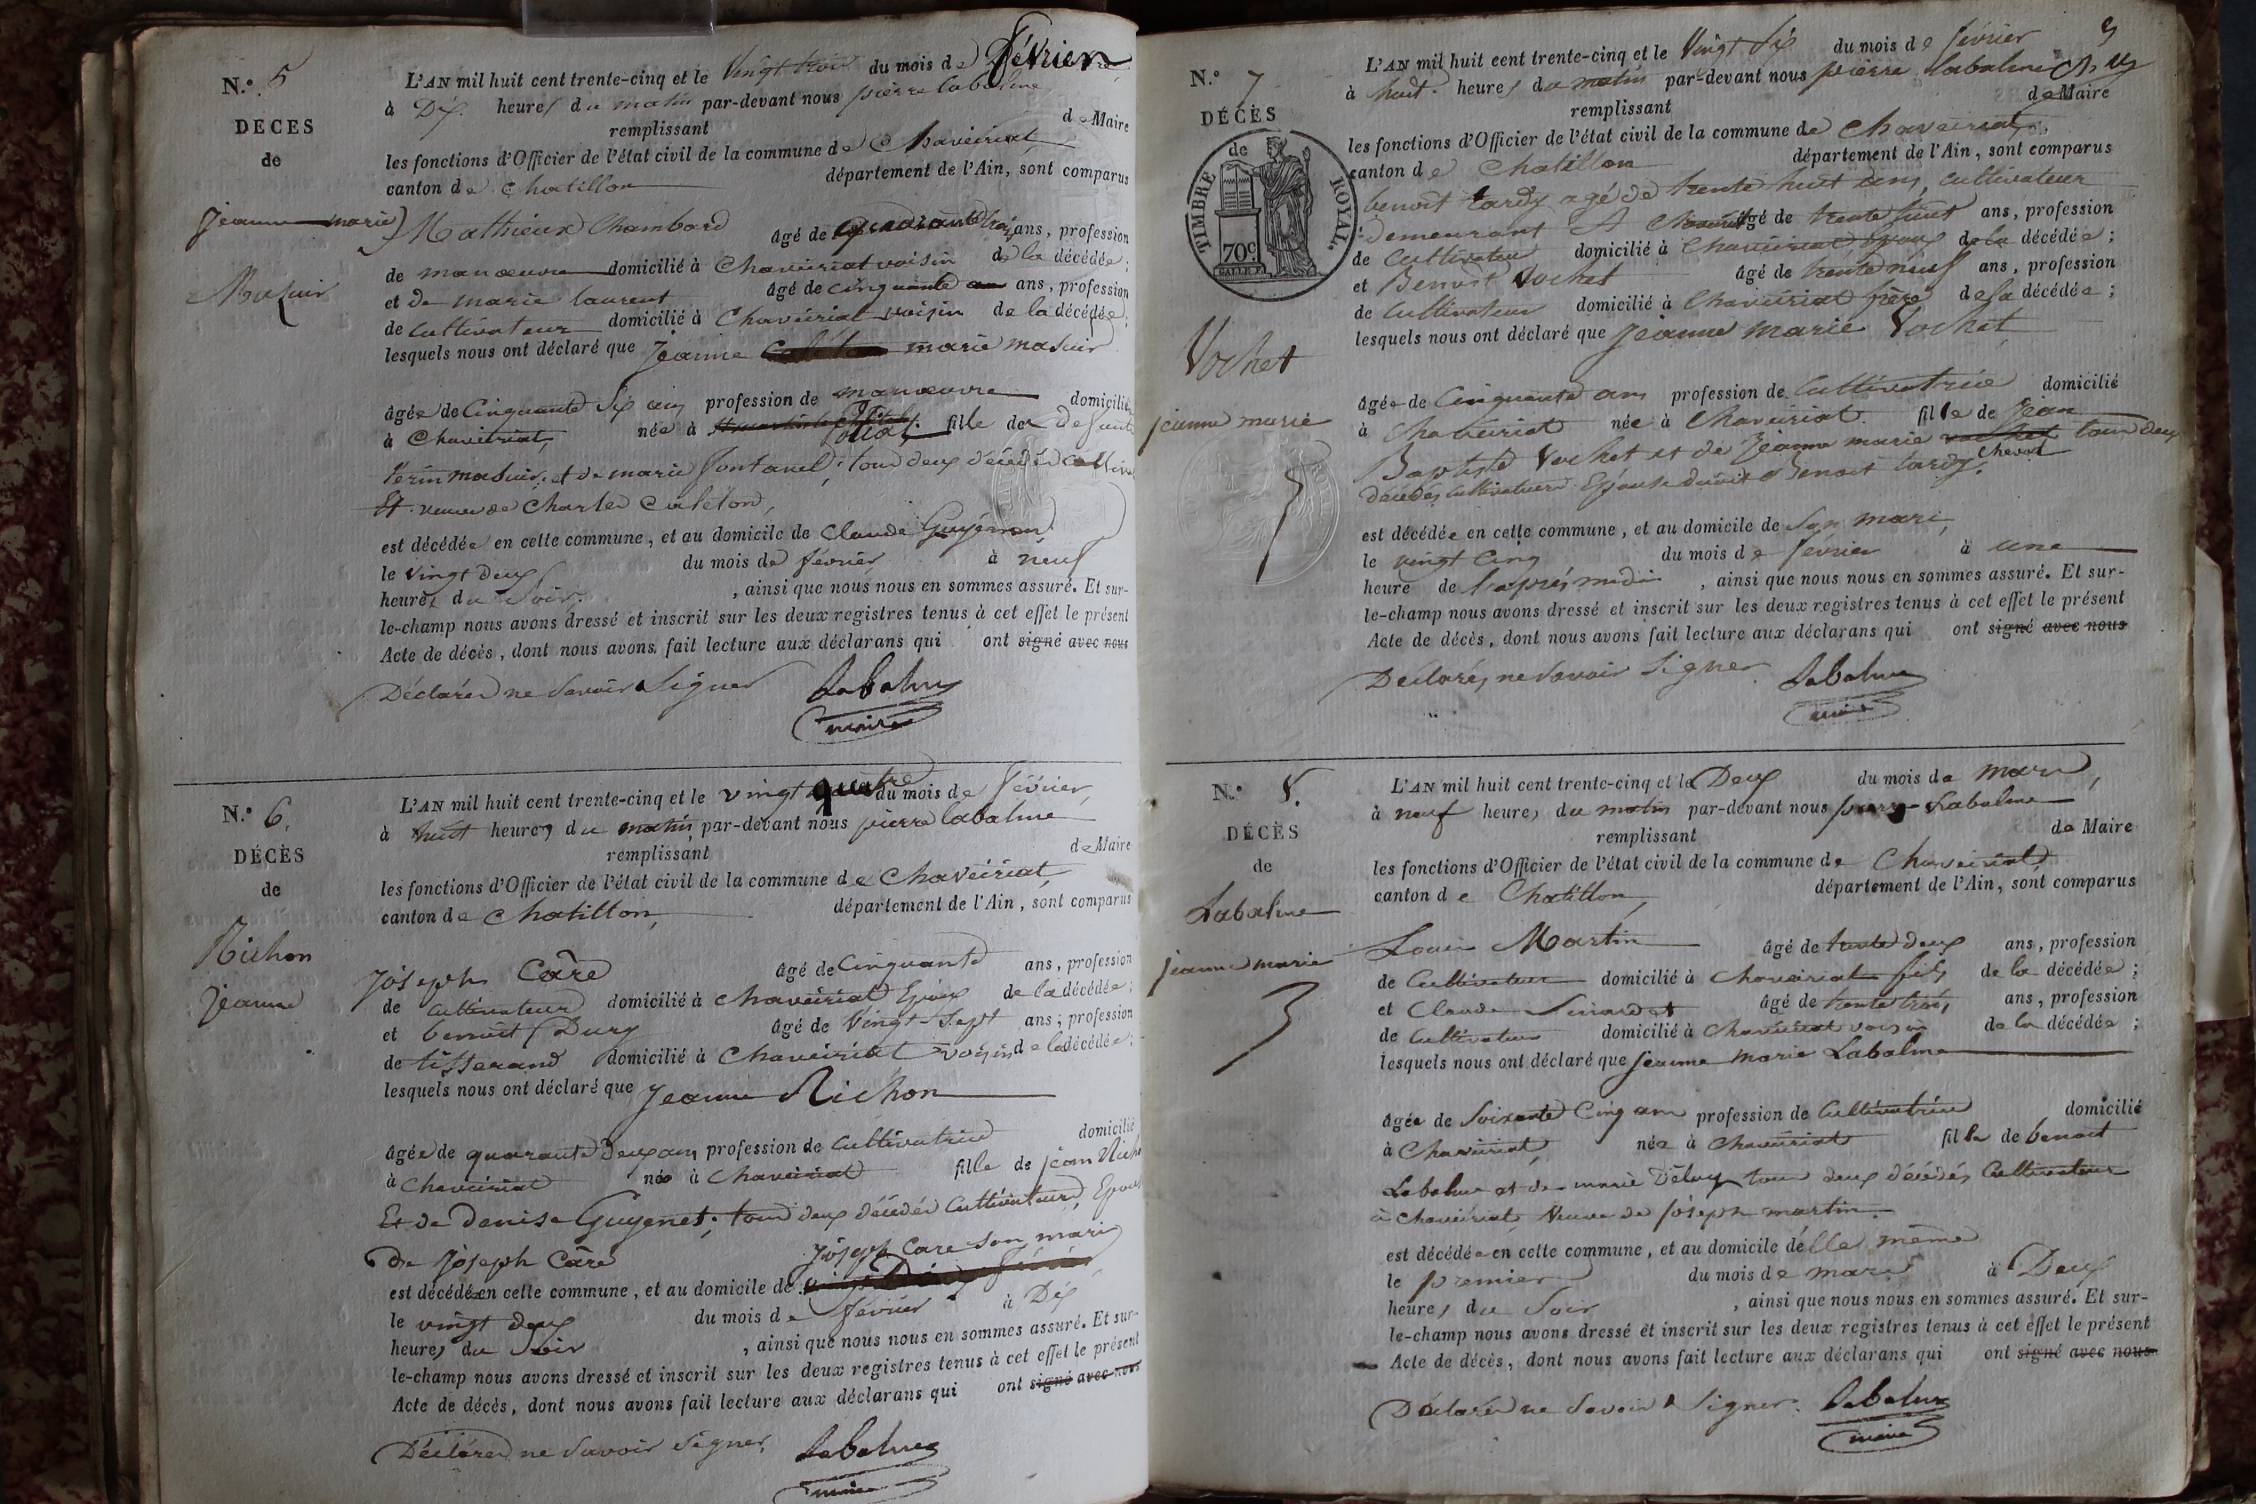 N.° 5
DÉCES
de
jeanne marie
Masuir
L'AN mil huit cent trente-cinq et le Vingt trois du mois de Février
à Dix heures du matin par-devant nous pierre labalme
remplissant de Maire
les fonctions d'Officier de l'état civil de la commune de Chaveiriat
canton de Chatillon département de l'Ain, sont comparus
Mathieux Chambard âgé de quarante trois ans, profession
de manœuvre domicilié à Chaveiriat voisin de la décédée;
et de marie laurent âgé de cinquante ans, profession
de Cultivateur domicilié à Chaveiriat voisin de la décédée;
lesquels nous ont déclaré que jeanne marie masuir
âgée de Cinquante Six ans profession de manœuvre domicilié
à Chaveiriat, née à Polliat fille de Defunt
masuir, et de marie fontanel, tous deux décédés
Et veuve de Charles Caleton,
est décédée en cette commune, et au domicile de Claude Guyennon
le vingt deux du mois de février à neuf
heures du Soir, ainsi que nous nous en sommes assuré. Et sur-
le-champ nous avons dressé et inscrit sur les deux registres tenus à cet effet le présent
Acte de décès, dont nous avons fait lecture aux déclarans qui ont signé avec nous
Déclarés ne Savoir Signer Labalme
maire
N.° 6.
DÉCÈS
de
Richon
jeanne
L'AN mil huit cent trente-cinq et le vingt quatre du mois de février,
à huit heures du matin par-devant nous pierre labalme
remplissant de Maire
les fonctions d'Officier de l'état civil de la commune de Chaveiriat,
canton de Chatillon, département de l'Ain, sont comparus
joseph Câre âgé de Cinquante ans, profession
de Cultivateur domicilié à Chaveiriat Epoux de la décédée;
et benoit Dury âgé de Vingt-Sept ans, profession
de tisserand domicilié à Chaveiriat voisin de la décédée;
lesquels nous ont déclaré que jeanne Richon
âgée de quarante deux ans profession de Cultivatrice domicilié
à Chaveiriat née à Chaveiriat fille de jean Richo
Et de Denise Guyenet, tous deux décédés Cultivateurs, Epouse
De joseph Câre joseph Care son mari
est décédée en cette commune, et au domicile de
le vingt deux du mois de février à Dix
heures du Soir, ainsi que nous nous en sommes assuré. Et sur-
le-champ nous avons dressé et inscrit sur les deux registres tenus à cet effet le présent
Acte de décès, dont nous avons fait lecture aux déclarans qui ont signé avec nous
Déclarés ne Savoir Signer, Labalme
maire
N.° 7
DÉCÈS
de
TIMBRE ROYAL.
70c
Vochet
jeanne marie
L'AN mil huit cent trente-cinq et le Vingt Six du mois de février
à huit heures du matin par-devant nous pierre labalme
remplissant de Maire
les fonctions d'Officier de l'état civil de la commune de Chaveiriat,
canton de Chatillon département de l'Ain, sont comparus
benoit tardy agé de trente huit ans, cultivateur
demeurant A Chaveiriat âgé de trente huit ans, profession
de Cultivateur domicilié à Chaveiriat Epoux de la décédée;
et Benoit Vochet âgé de trente neuf ans, profession
de Cultivateur domicilié à Chaveiriat frère de la décédée;
lesquels nous ont déclaré que jeanne marie Vochet
âgée de Cinquante ans profession de Cultivatrice domicilié
à Chaveiriat née à Chaveiriat. fille de Jean
Baptiste Vochet et de jeanne marie vochet tous deux
décédés Cultivateurs Epouse dudit Benoit tardy,
est décédée en cette commune, et au domicile de Son mari,
le vingt Cinq du mois de février à une
heure de l'après midi, ainsi que nous nous en sommes assuré. Et sur-
le-champ nous avons dressé et inscrit sur les deux registres tenus à cet effet le présent
Acte de décès, dont nous avons fait lecture aux déclarans qui ont signé avec nous
Déclarés ne Savoir Signer Labalme
maire
N.° 8.
DÉCÈS
de
Labalme
jeanne marie
L'AN mil huit cent trente-cinq et le Deux du mois de mars,
à neuf heures du matin par-devant nous pierre Labalme
remplissant de Maire
les fonctions d'Officier de l'état civil de la commune de Chaveiriat,
canton de Chatillon, département de l'Ain, sont comparus
Louis Martin âgé de trente deux ans, profession
de Cultivateur domicilié à Chaveiriat fils de la décédée;
et Claude âgé de trente trois ans, profession
de Cultivateur domicilié à Chaveiriat voisin de la décédée;
lesquels nous ont déclaré que jeanne Marie Labalme
âgée de Soixante Cinq ans profession de Cultivatrice domicilié
à Chaveiriat, née à Chaveiriat fille de benoit
Labalme et de marie tous deux décédés Cultivateurs
à Chaveiriat, Veuve de joseph martin.
est décédée en cette commune, et au domicile d'elle même
le premier du mois de mars à Deux
heures du Soir, ainsi que nous nous en sommes assuré. Et sur-
le-champ nous avons dressé et inscrit sur les deux registres tenus à cet effet le présent
Acte de décès, dont nous avons fait lecture aux déclarans qui ont signé avec nous
Déclarés ne Savoir Signer. Labalme
maire